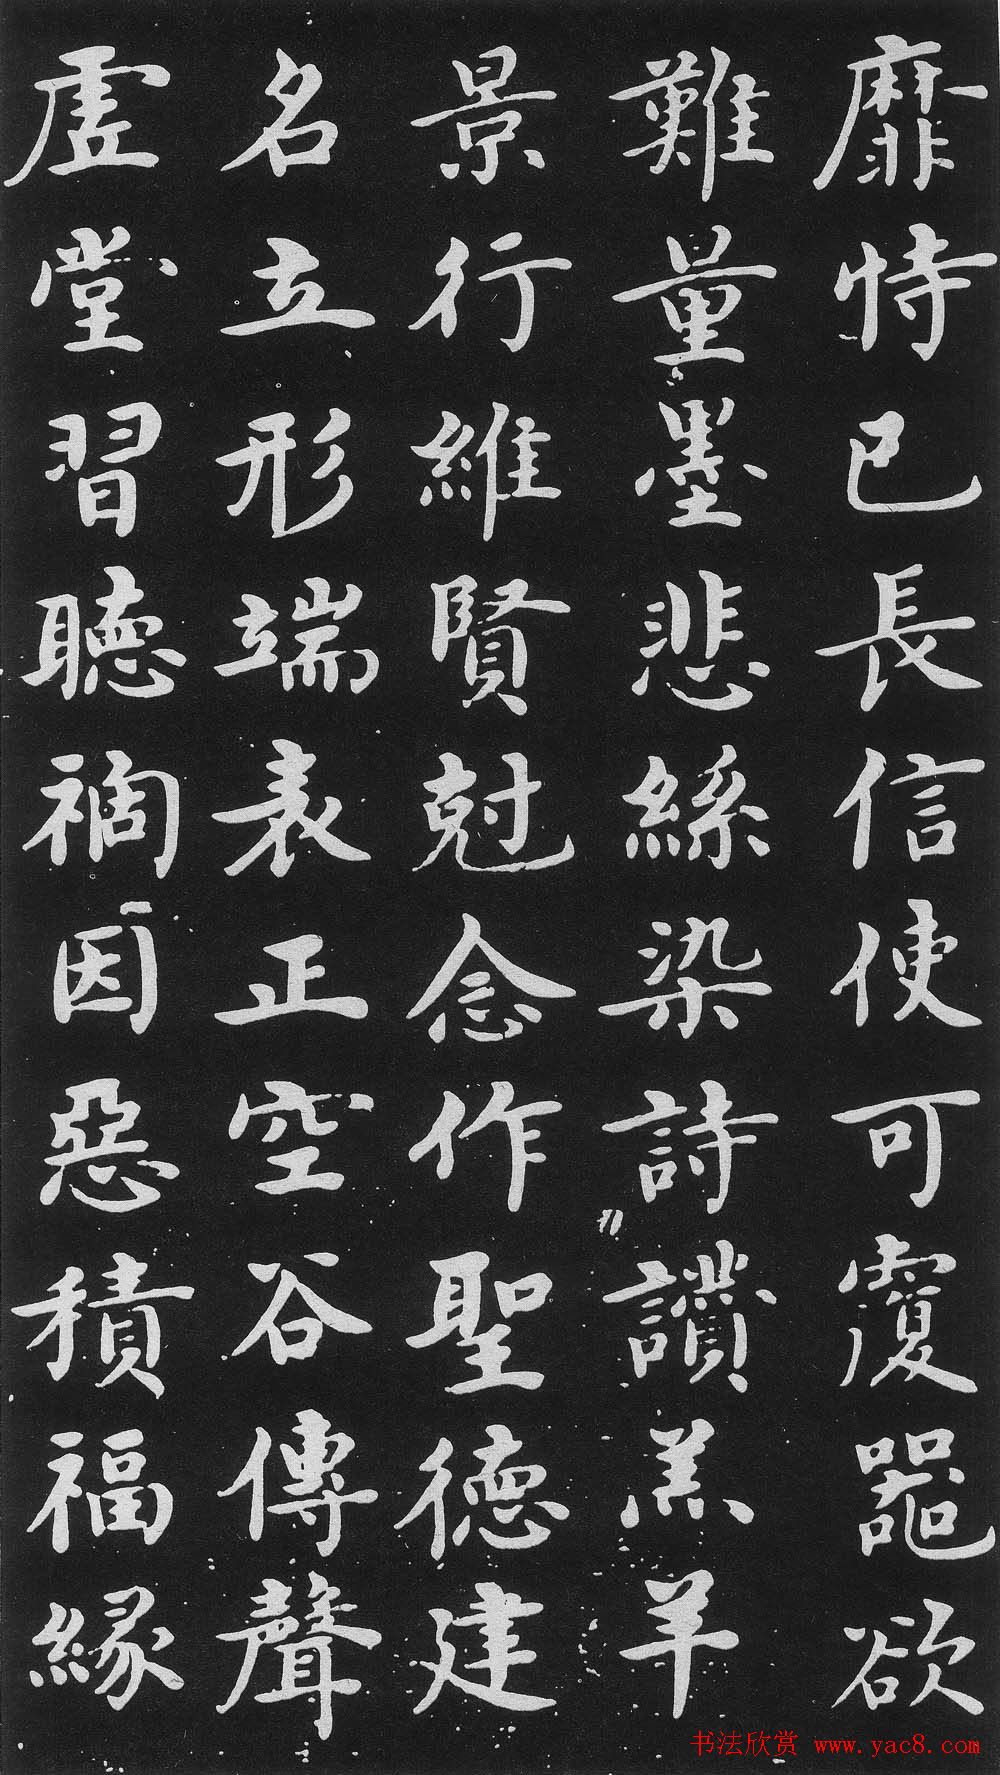 靡恃己長信使可覆器欲
難量墨悲絲染詩讚羔羊
景行維賢尅念作聖德建
名立形端表正空谷傳聲
虛堂習聽禍因惡積福緣
书法欣赏 www.yac8.com